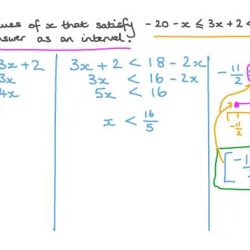 ues of x that satisfy -20 - x ≤ 3x + 2 <
nswer as an interval.
3x + 2
3x
4x
3x + 2 < 18 - 2x
3x < 16 - 2x
5x < 16
x < 16/5
-11/2
-11/2
[ -1